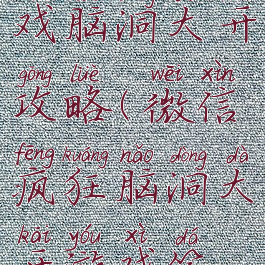 戏脑洞大开
gōng lüè wēi xìn
攻略(微信
fēng kuáng nǎo dòng dà
疯狂脑洞大
kāi yóu xì dá